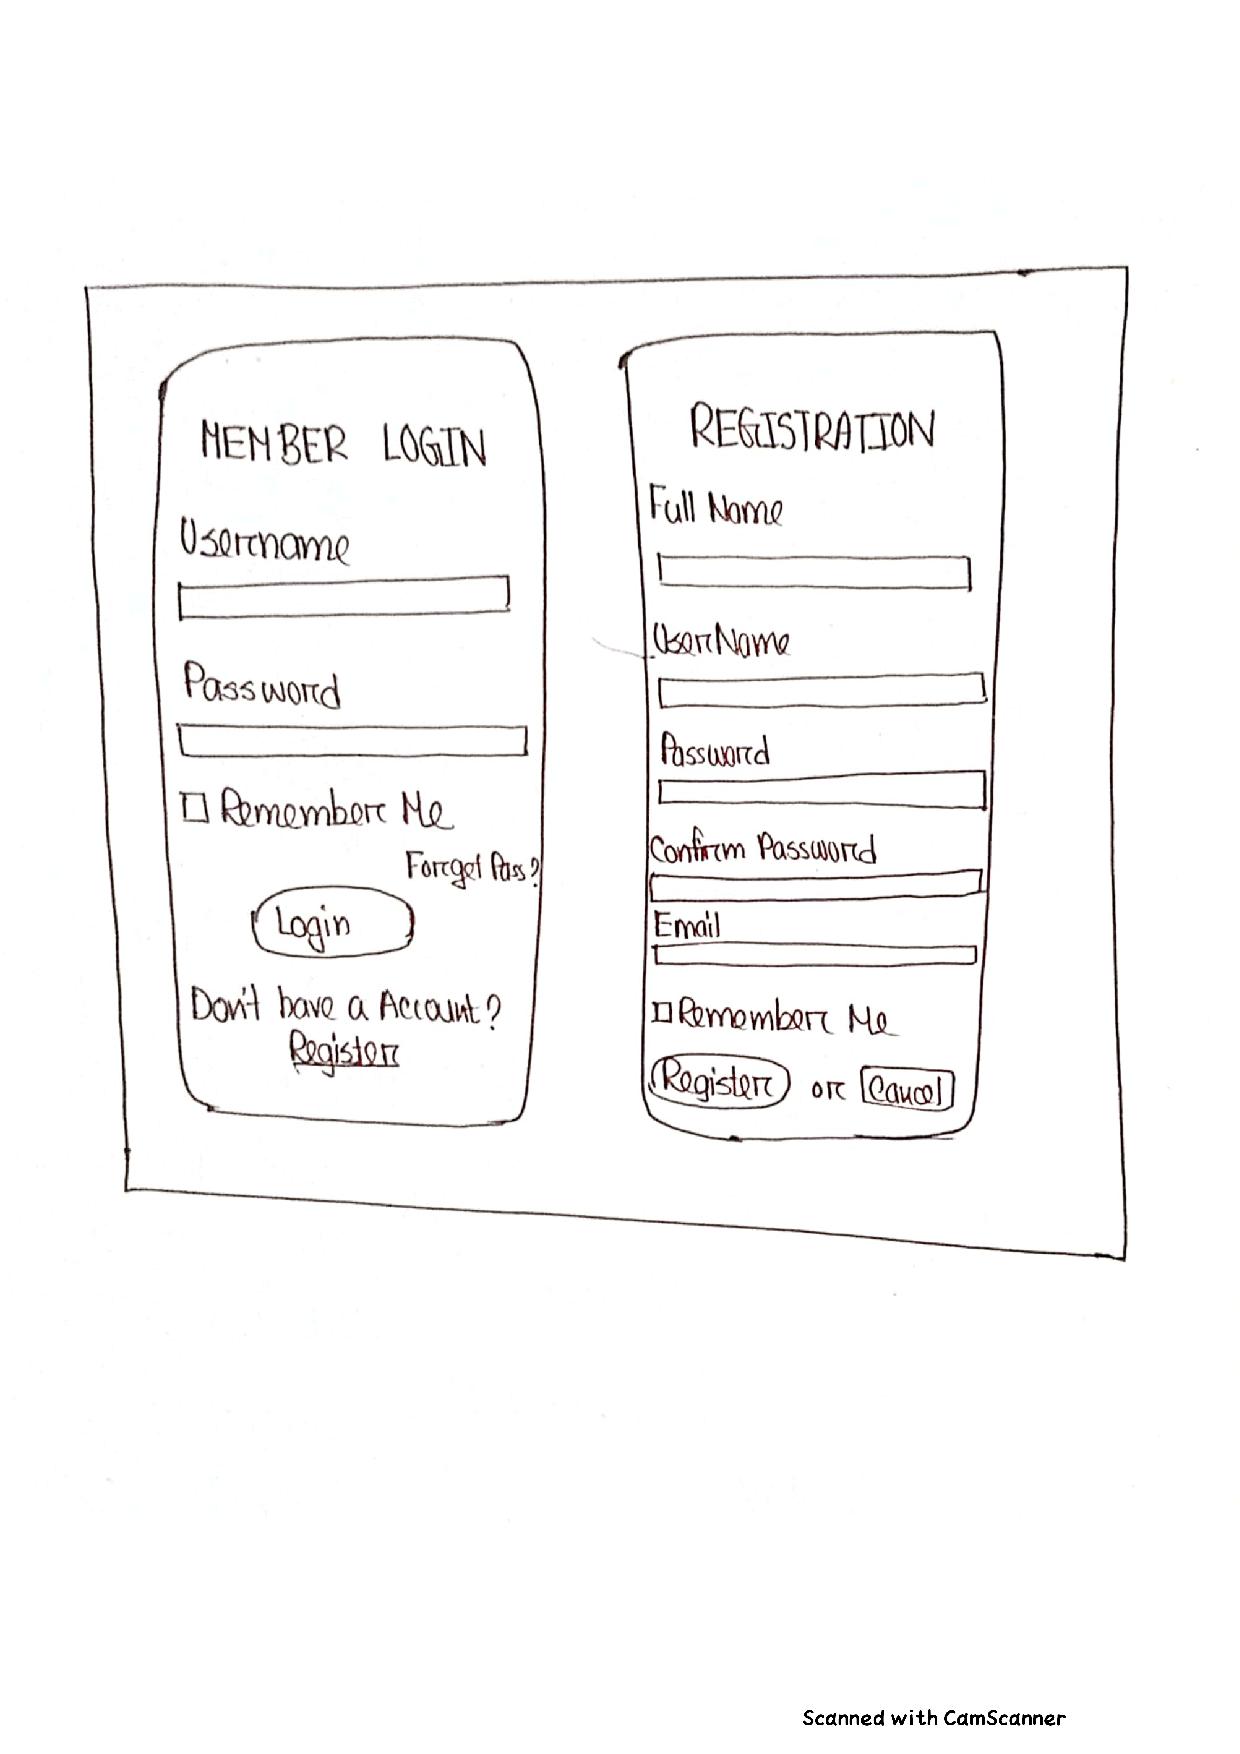 MEMBER LOGIN
Username
Password
Remember Me
Forget Pass?
Login
Don't have a Account?
Register
REGISTRATION
Full Name
UserName
Password
Confirm Password
Email
Remember Me
Register or Cancel
Scanned with CamScanner